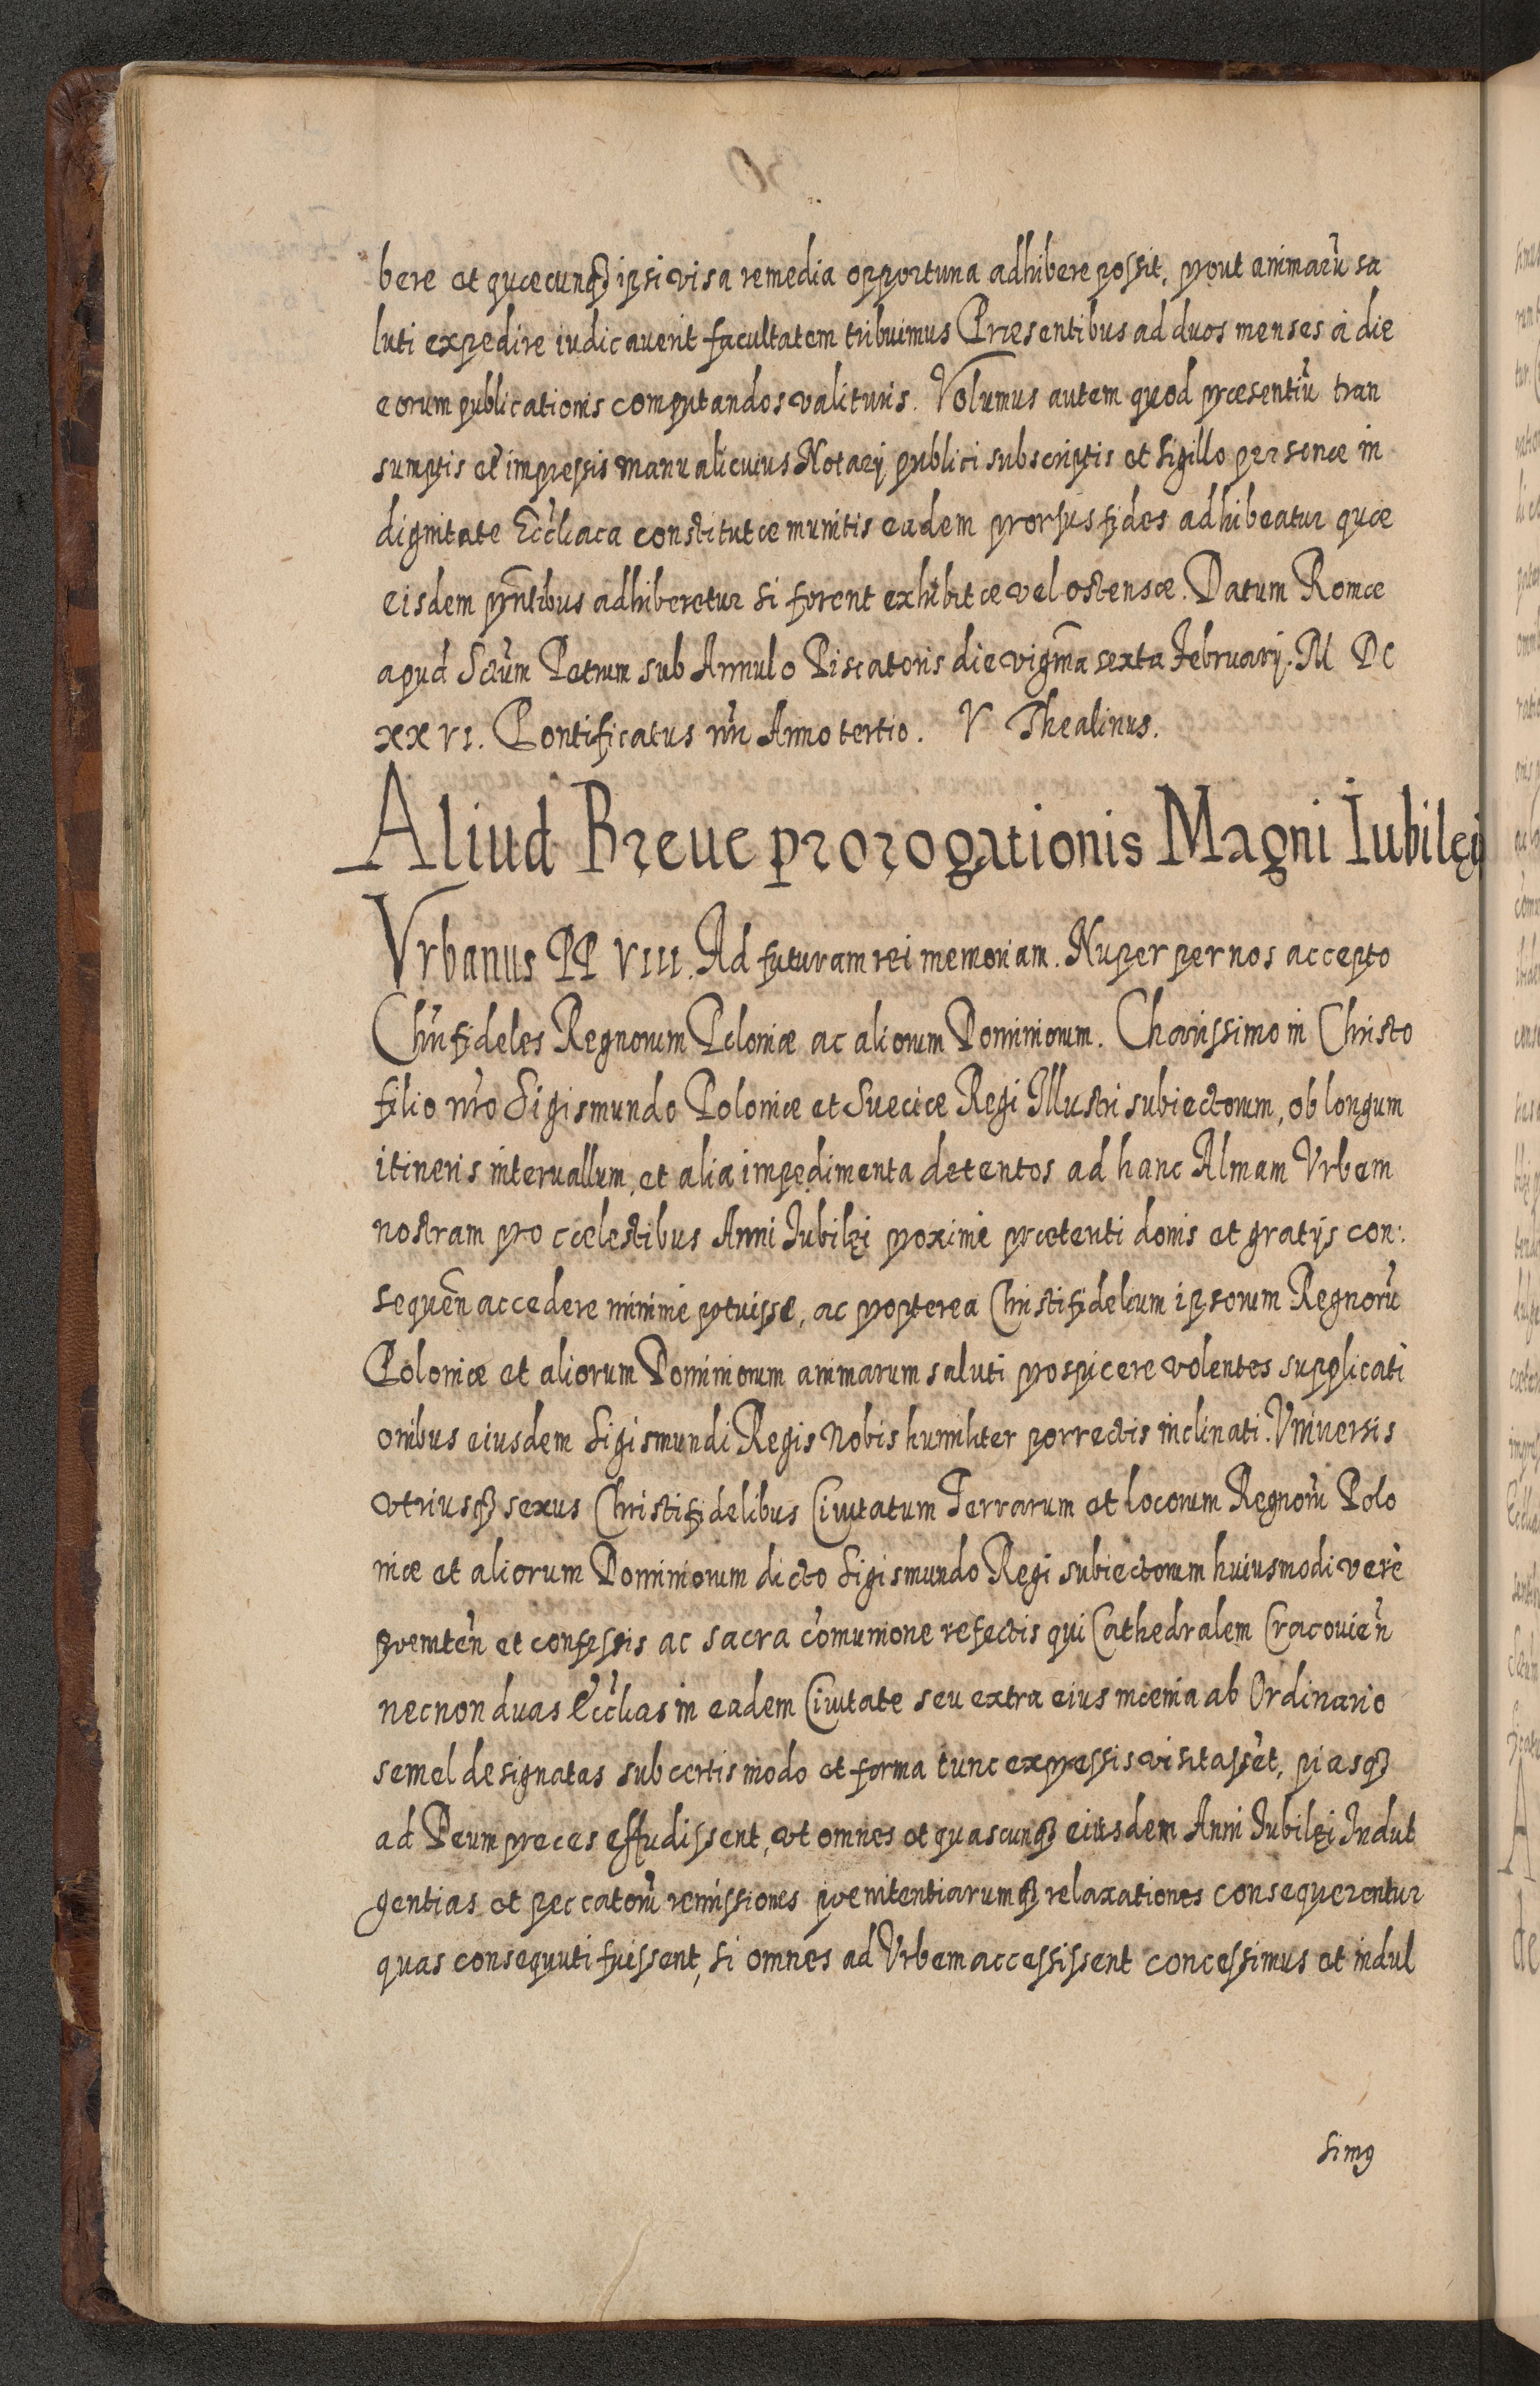 bere et quæcunqꝫ ipsi visa remedia opportuna adhibere possit, prout animarũ sa
luti expedire iudicauerit facultatem tribuimus Præsentibus ad duos menses à die
eorum publicationis computandos valituris. Volumus autem quod præsentiũ tran
sumptis et impressis manu alicuius Notarij publici subscriptis et sigillo personæ in
dignitate Eccliaca constitutæ munitis eadem prorsus fides adhibeatur quæ
eisdem pñtibus adhiberetur si forent exhibitæ vel ostensæ. Datum Romæ
apud Sctũm Petrum sub Annulo Piscatoris die vigm̃a sexta February. M DC
XXVI. Pontificatus nr̃i Anno tertio. V Thealinus.
Aliud Breue prorogationis Magni Iubilęi
Vrbanus PP VIII. Ad futuram rei memoriam. Nuper per nos accepto
Chri̇̃fideles Regnorum Poloniæ ac aliorum Dominiorum. Charissimo in Christo
filio nr̃o Sigismundo Poloniæ et Sueciæ Regi Illustri subiectorum, ob longum
itineris interuallum, et alia impedimenta detentos ad hanc Almam Vrbem
nostram pro cœlestibus Anni Iubilęi proximè præteriti donis et gratijs con:
sequen̄ accedere minimè potuisse, ac propterea Christifidelium ipsorum Regnorũ
Poloniæ et aliorum Dominiorum animarum saluti prospicere volentes supplicati
onibus eiusdem Sigismundi Regis Nobis humiliter porrectis inclinati. Vniuersis
vtriusqꝫ sexus Christifidelibus Ciuitatum Terrarum et locorum Regnorũ Polo
niæ et aliorum Dominiorum dicto Sigismundo Regi subiectorum huiusmodi verè
pœnitẽn et confessis ac sacra cõmunione refectis qui Cathedralem Cracouiẽn
necnon duas Ecclias in eadem Ciuitate seu extra eius mœnia ab Ordinario
semel designatas sub certis modo et forma tunc expressis visitassẽt, piasqꝫ
ad Deum preces effudissent, vt omnes et quascunqꝫ eiusdem Anni Iubilęi Indul
gentias et peccatorũ remissiones pœnitentiarumqꝫ relaxationes consequerentur
quas consequuti fuissent, si omnes ad Vrbem accessissent concessimus et indul
simꝯ